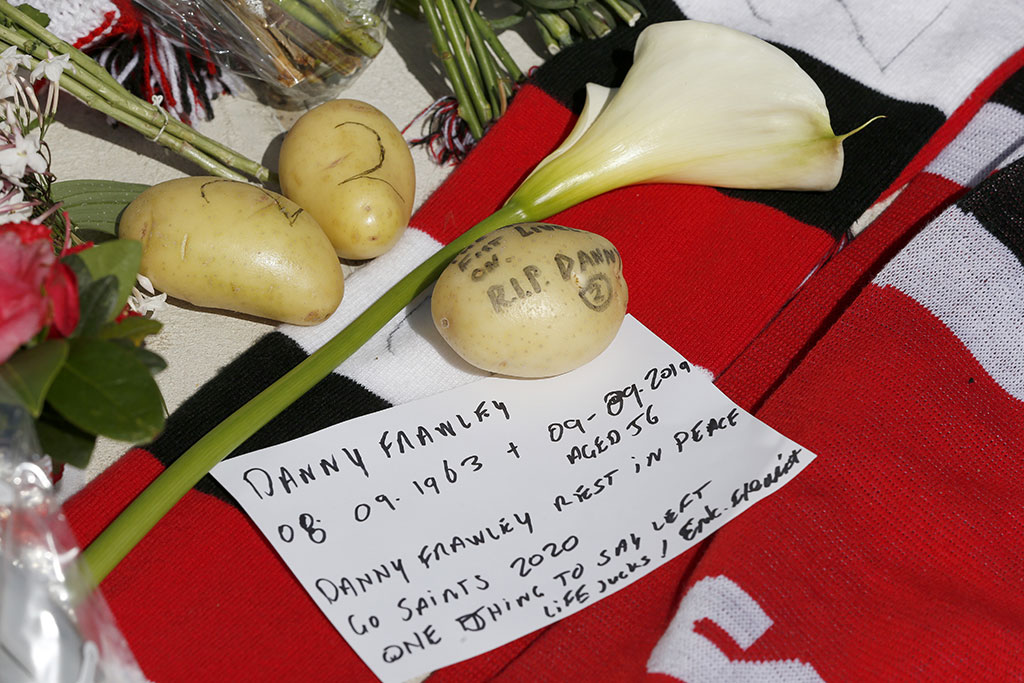 2
ON.
R.I.P. DANN
2
DANNY FRAWLEY
08. 09. 1963 + 09-09-2019
AGED 56
DANNY FRAWLEY REST IN PEACE
GO SAINTS 2020
ONE THING TO SAY LEFT
LIFE SUCKS!